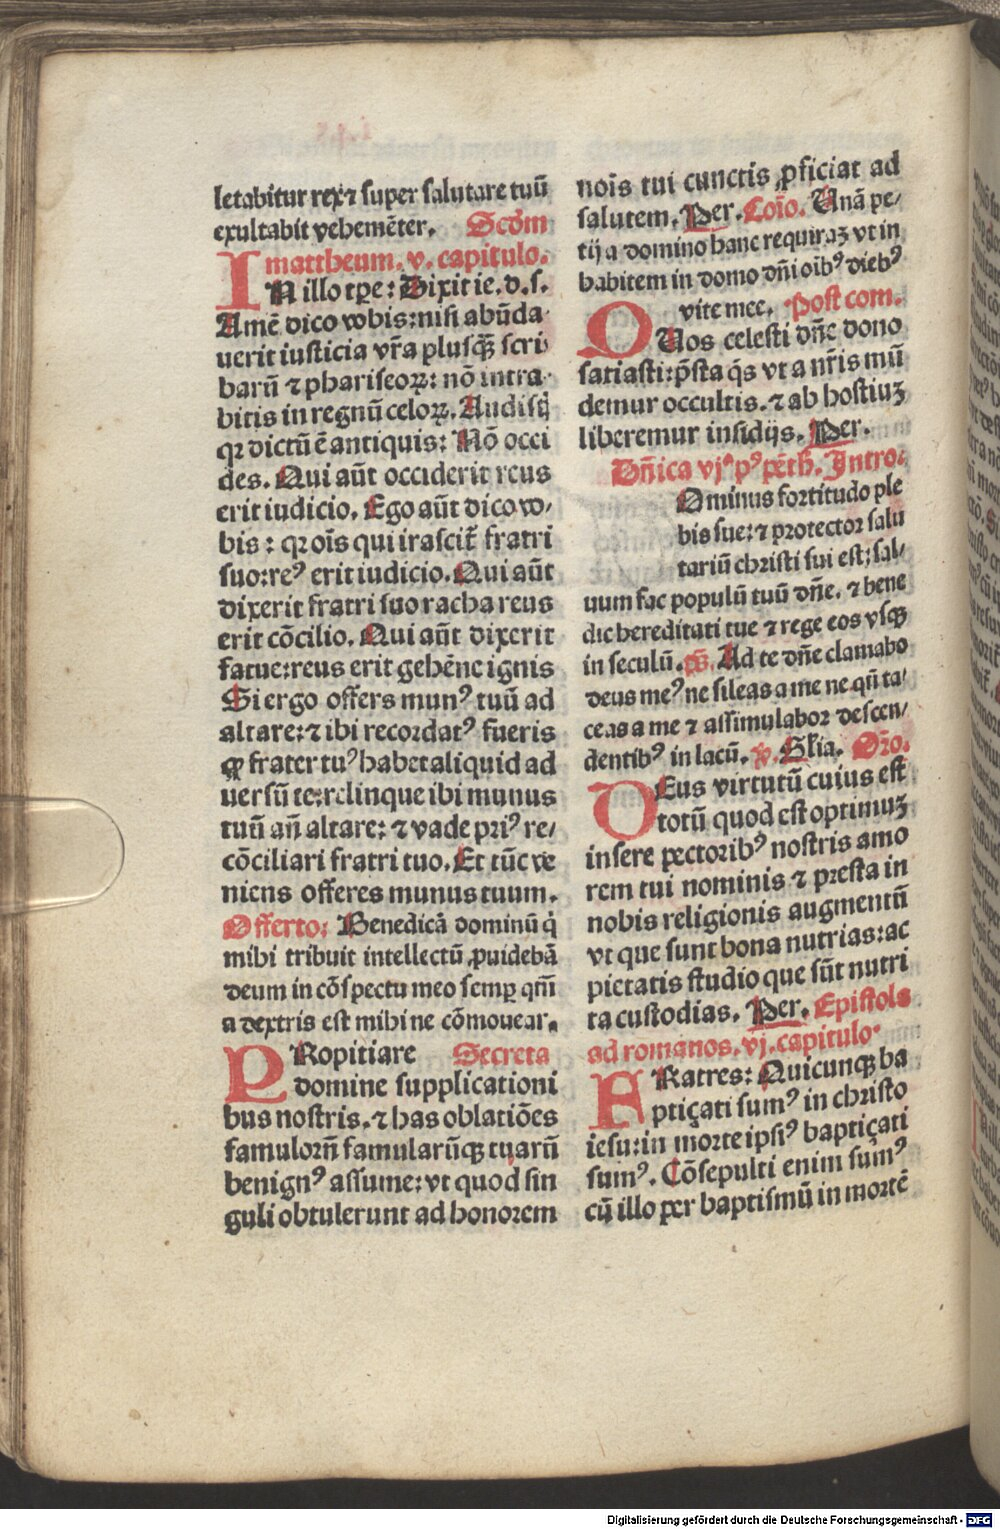 letabitur rex ⁊ super salutare tuū
exultabit vehemēter. Scďm
mattheum. v. capitulo.
IN illo tꝑe: Dixit ie. d. s.
Amē dico vobis: nisi abūda
uerit iusticia vr̄a plusq̄ꝫ scri
barū ⁊ phariseoꝝ: nō intra
bitis in regnū celoꝝ. Audistꝭ
qꝛ dictū ē antiquis: Nō occi
des. Qui aūt occiderit reus
erit iudicio. Ego aūt dico vo/
bis: qꝛ oīs qui irascit̄ fratri
suo: reꝰ erit iudicio. Qui aūt
dixerit fratri suo racha reus
erit cōcilio. Qui aūt dixerit
fatue: reus erit gehēne ignis
Si ergo offers munꝰ tuū ad
altare: ⁊ ibi recordatꝰ fueris
ꝙ frater tuꝰ habet aliquid ad
uersū te: relinque ibi munus
tuū an̄ altare: ⁊ vade priꝰ re/
cōciliari fratri tuo. Et tūc ve
niens offeres munus tuum.
Offerto: Benedicā dominū q̇
mihi tribuit intellectū ꝓuidebā
deum in cōspectu meo semꝑ qm̄
a dextris est mihi ne cōmouear.
PRopitiare Secreta
domine supplicationi
bus nostris. ⁊ has oblatiōes
famulorū famularūqꝫ tuarū
benignꝰ assume: vt quod sin
guli obtulerunt ad honorem
nois̄ tui cunctis ꝓficiat ad
salutem. Per. Coīo. Unā pe/
tij a domino hanc requiraꝫ vt in
habitem in domo dn̄i oībꝰ diebꝰ
vite mee. Post com.
QUos celesti dn̄e dono
satiasti: p̄sta q̄s vt a nr̄is mū
demur occultis. ⁊ ab hostiuꝫ
liberemur insidijs. Per.
Dn̄ica vjᵃ pꝰ pēth. Intro:
Ominus fortitudo ple
bis sue: ⁊ protector salu
tariū christi sui est; sal/
uum fac populū tuū dn̄e. ⁊ bene
dic hereditati tue ⁊ rege eos vsqꝫ
in seculū. ps̄. Ad te dn̄e clamabo
deus meꝰ ne sileas a me ne qn̄ ta/
ceas a me ⁊ assimulabor descen/
dentibꝰ in lacū. ℣. Gl̄ia. Oro.
DEus virtutū cuius est
totū quod est optimuꝫ
insere pectoribꝰ nostris amo
rem tui nominis ⁊ presta in
nobis religionis augmentū
vt que sunt bona nutrias: ac
pietatis studio que sūt nutri
ta custodias. Per. Epistola
ad romanos. vj. capitulo.
FRatres: Quicunqꝫ ba
ptiçati sumꝰ in christo
iesu: in morte ipsiꝰ baptiçati
sumꝰ. Cōsepulti enim sumꝰ
cū illo per baptismū in mortē
Digitalisierung gefördert durch die Deutsche Forschungsgemeinschaft - DFG